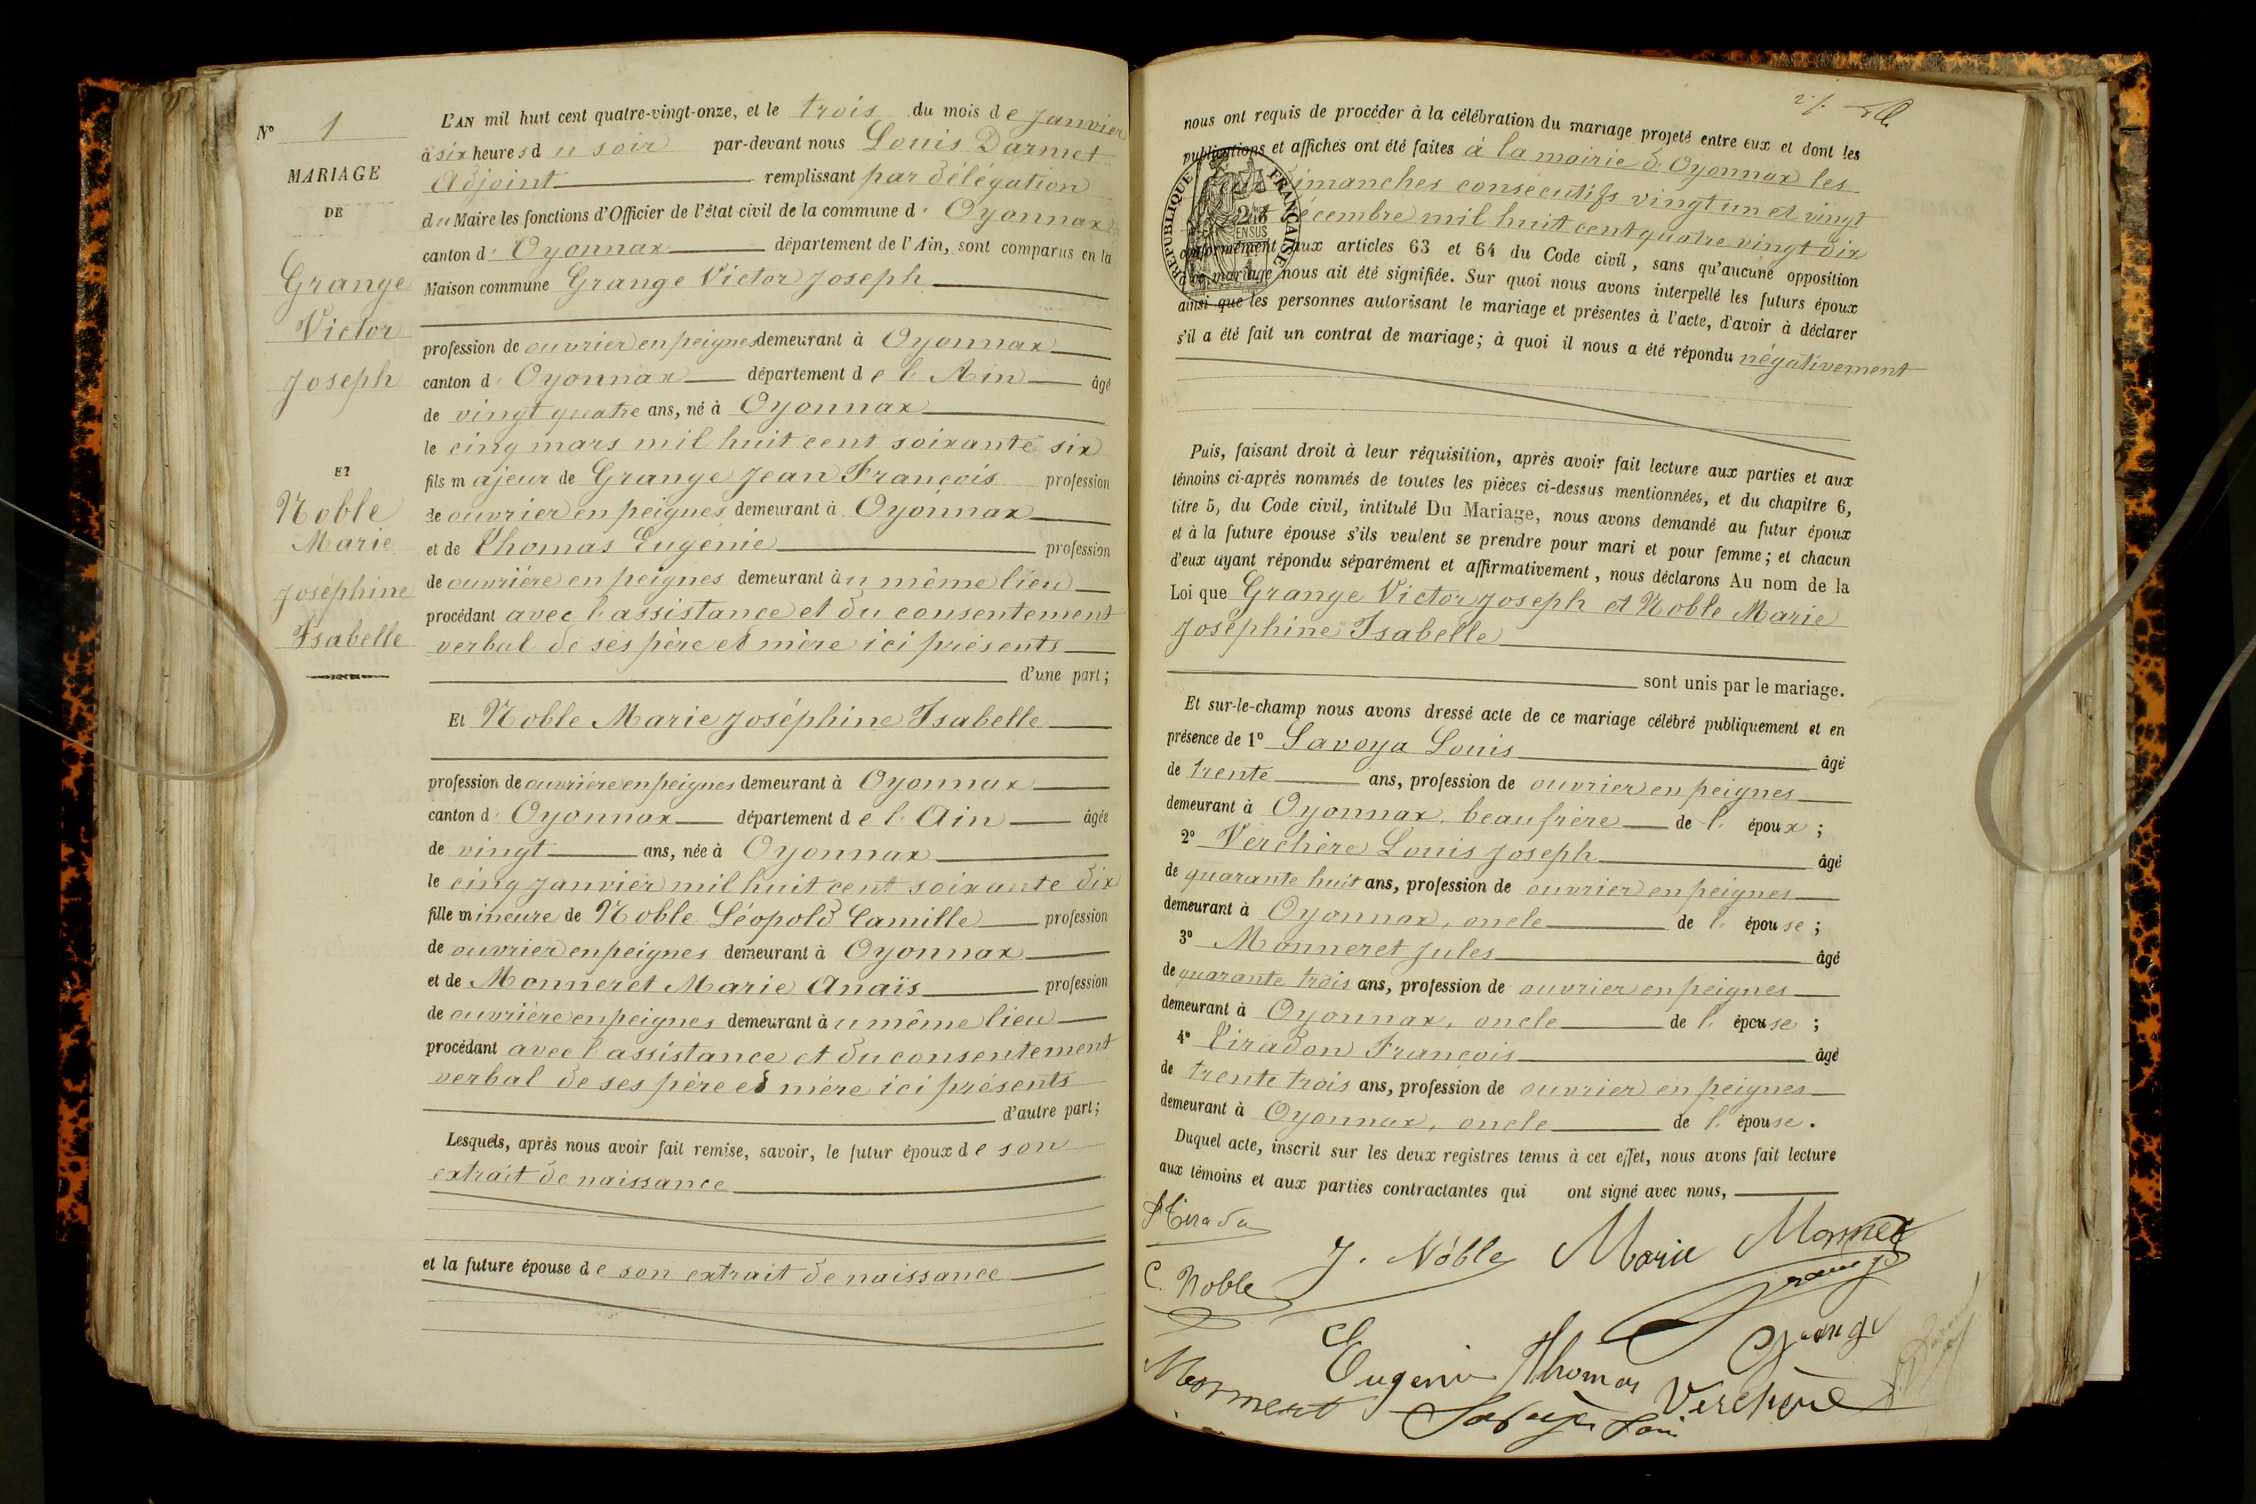 N° 1
MARIAGE
DE
Grange
Victor
Joseph
ET
Noble
Marie
Joséphine
Isabelle
L'AN mil huit cent quatre-vingt-onze, et le trois du mois de Janvier
à six heures du soir par-devant nous Louis Darmet
Adjoint remplissant par délégation
du Maire les fonctions d'Officier de l'état civil de la commune d' Oyonnax
canton d' Oyonnax département de l'Ain, sont comparus en la
Maison commune Grange Victor Joseph
profession de ouvrier en peignes demeurant à Oyonnax
canton d' Oyonnax département de l'Ain âgé
de vingt quatre ans, né à Oyonnax
le cinq mars mil huit cent soixante six
fils majeur de Grange Jean François profession
de ouvrier en peignes demeurant à Oyonnax
et de Thomas Eugénie profession
de ouvrière en peignes demeurant àu même lieu
procédant avec l'assistance et du consentement
verbal de ses père et mère ici présents
d'une part;
Et Noble Marie Joséphine Isabelle
profession de ouvrière en peignes demeurant à Oyonnax
canton d' Oyonnax département de l'Ain âgée
de vingt ans, née à Oyonnax
le cinq Janvier mil huit cent soixante dix
fille mineure de Noble Léopold Camille profession
de ouvrier en peignes demeurant à Oyonnax
et de Monneret Marie Anaïs profession
de ouvrière en peignes demeurant àu même lieu
procédant avec l'assistance et du consentement
verbal de ses père et mère ici présents
d'autre part;
Lesquels, après nous avoir fait remise, savoir, le futur époux de son
extrait de naissance
et la future épouse de son extrait de naissance
nous ont requis de procéder à la célébration du mariage projeté entre eux et dont les
publications et affiches ont été faites à la mairie d'Oyonnax les
dimanches consécutifs vingt un et vingt
décembre mil huit cent quatre vingt dix
RÉPUBLIQUE FRANÇAISE
conformément aux articles 63 et 64 du Code civil, sans qu'aucune opposition
à ce mariage nous ait été signifiée. Sur quoi nous avons interpellé les futurs époux
ainsi que les personnes autorisant le mariage et présentes à l'acte, d'avoir à déclarer
s'il a été fait un contrat de mariage; à quoi il nous a été répondu négativement
Puis, faisant droit à leur réquisition, après avoir fait lecture aux parties et aux
témoins ci-après nommés de toutes les pièces ci-dessus mentionnées, et du chapitre 6,
titre 5, du Code civil, intitulé Du Mariage, nous avons demandé au futur époux
et à la future épouse s'ils veulent se prendre pour mari et pour femme; et chacun
d'eux ayant répondu séparément et affirmativement, nous déclarons Au nom de la
Loi que Grange Victor Joseph et Noble Marie
Joséphine Isabelle
sont unis par le mariage.
Et sur-le-champ nous avons dressé acte de ce mariage célébré publiquement et en
présence de 1° Savoya Louis âgé
de trente ans, profession de ouvrier en peignes
demeurant à Oyonnax, beaufrère de l' époux;
2° Verchère Louis Joseph âgé
de quarante huit ans, profession de ouvrier en peignes
demeurant à Oyonnax, oncle de l' épouse;
3° Monneret Jules âgé
de quarante trois ans, profession de ouvrier en peignes
demeurant à Oyonnax, oncle de l' épouse;
4° Tiradon François âgé
de trente trois ans, profession de ouvrier en peignes
demeurant à Oyonnax, oncle de l' épouse.
Duquel acte, inscrit sur les deux registres tenus à cet effet, nous avons fait lecture
aux témoins et aux parties contractantes qui ont signé avec nous,
J. Noble Marie
C. Noble Grange
Eugenie Thomas Grange
Verchère